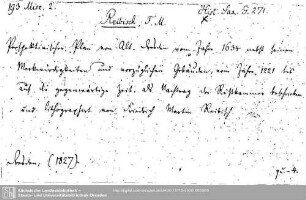 193 Misc. 2.
Hist. Sax. G. 271.
Reibisch, F. M.
Perspektivischer Plan von Alt-Dresden vom Jahre 1634 nebst seinen
Merkwürdigkeiten und vorzüglichen Gebäuden, vom Jahre 1521 bis
auf die gegenwärtige Zeit, als Nachtrag der
und lithographirt von Friedrich Martin Reibisch
Dresden, (1827)
qu-4.
Sächsische Landesbibliothek -
Staats- und Universitätsbibliothek Dresden